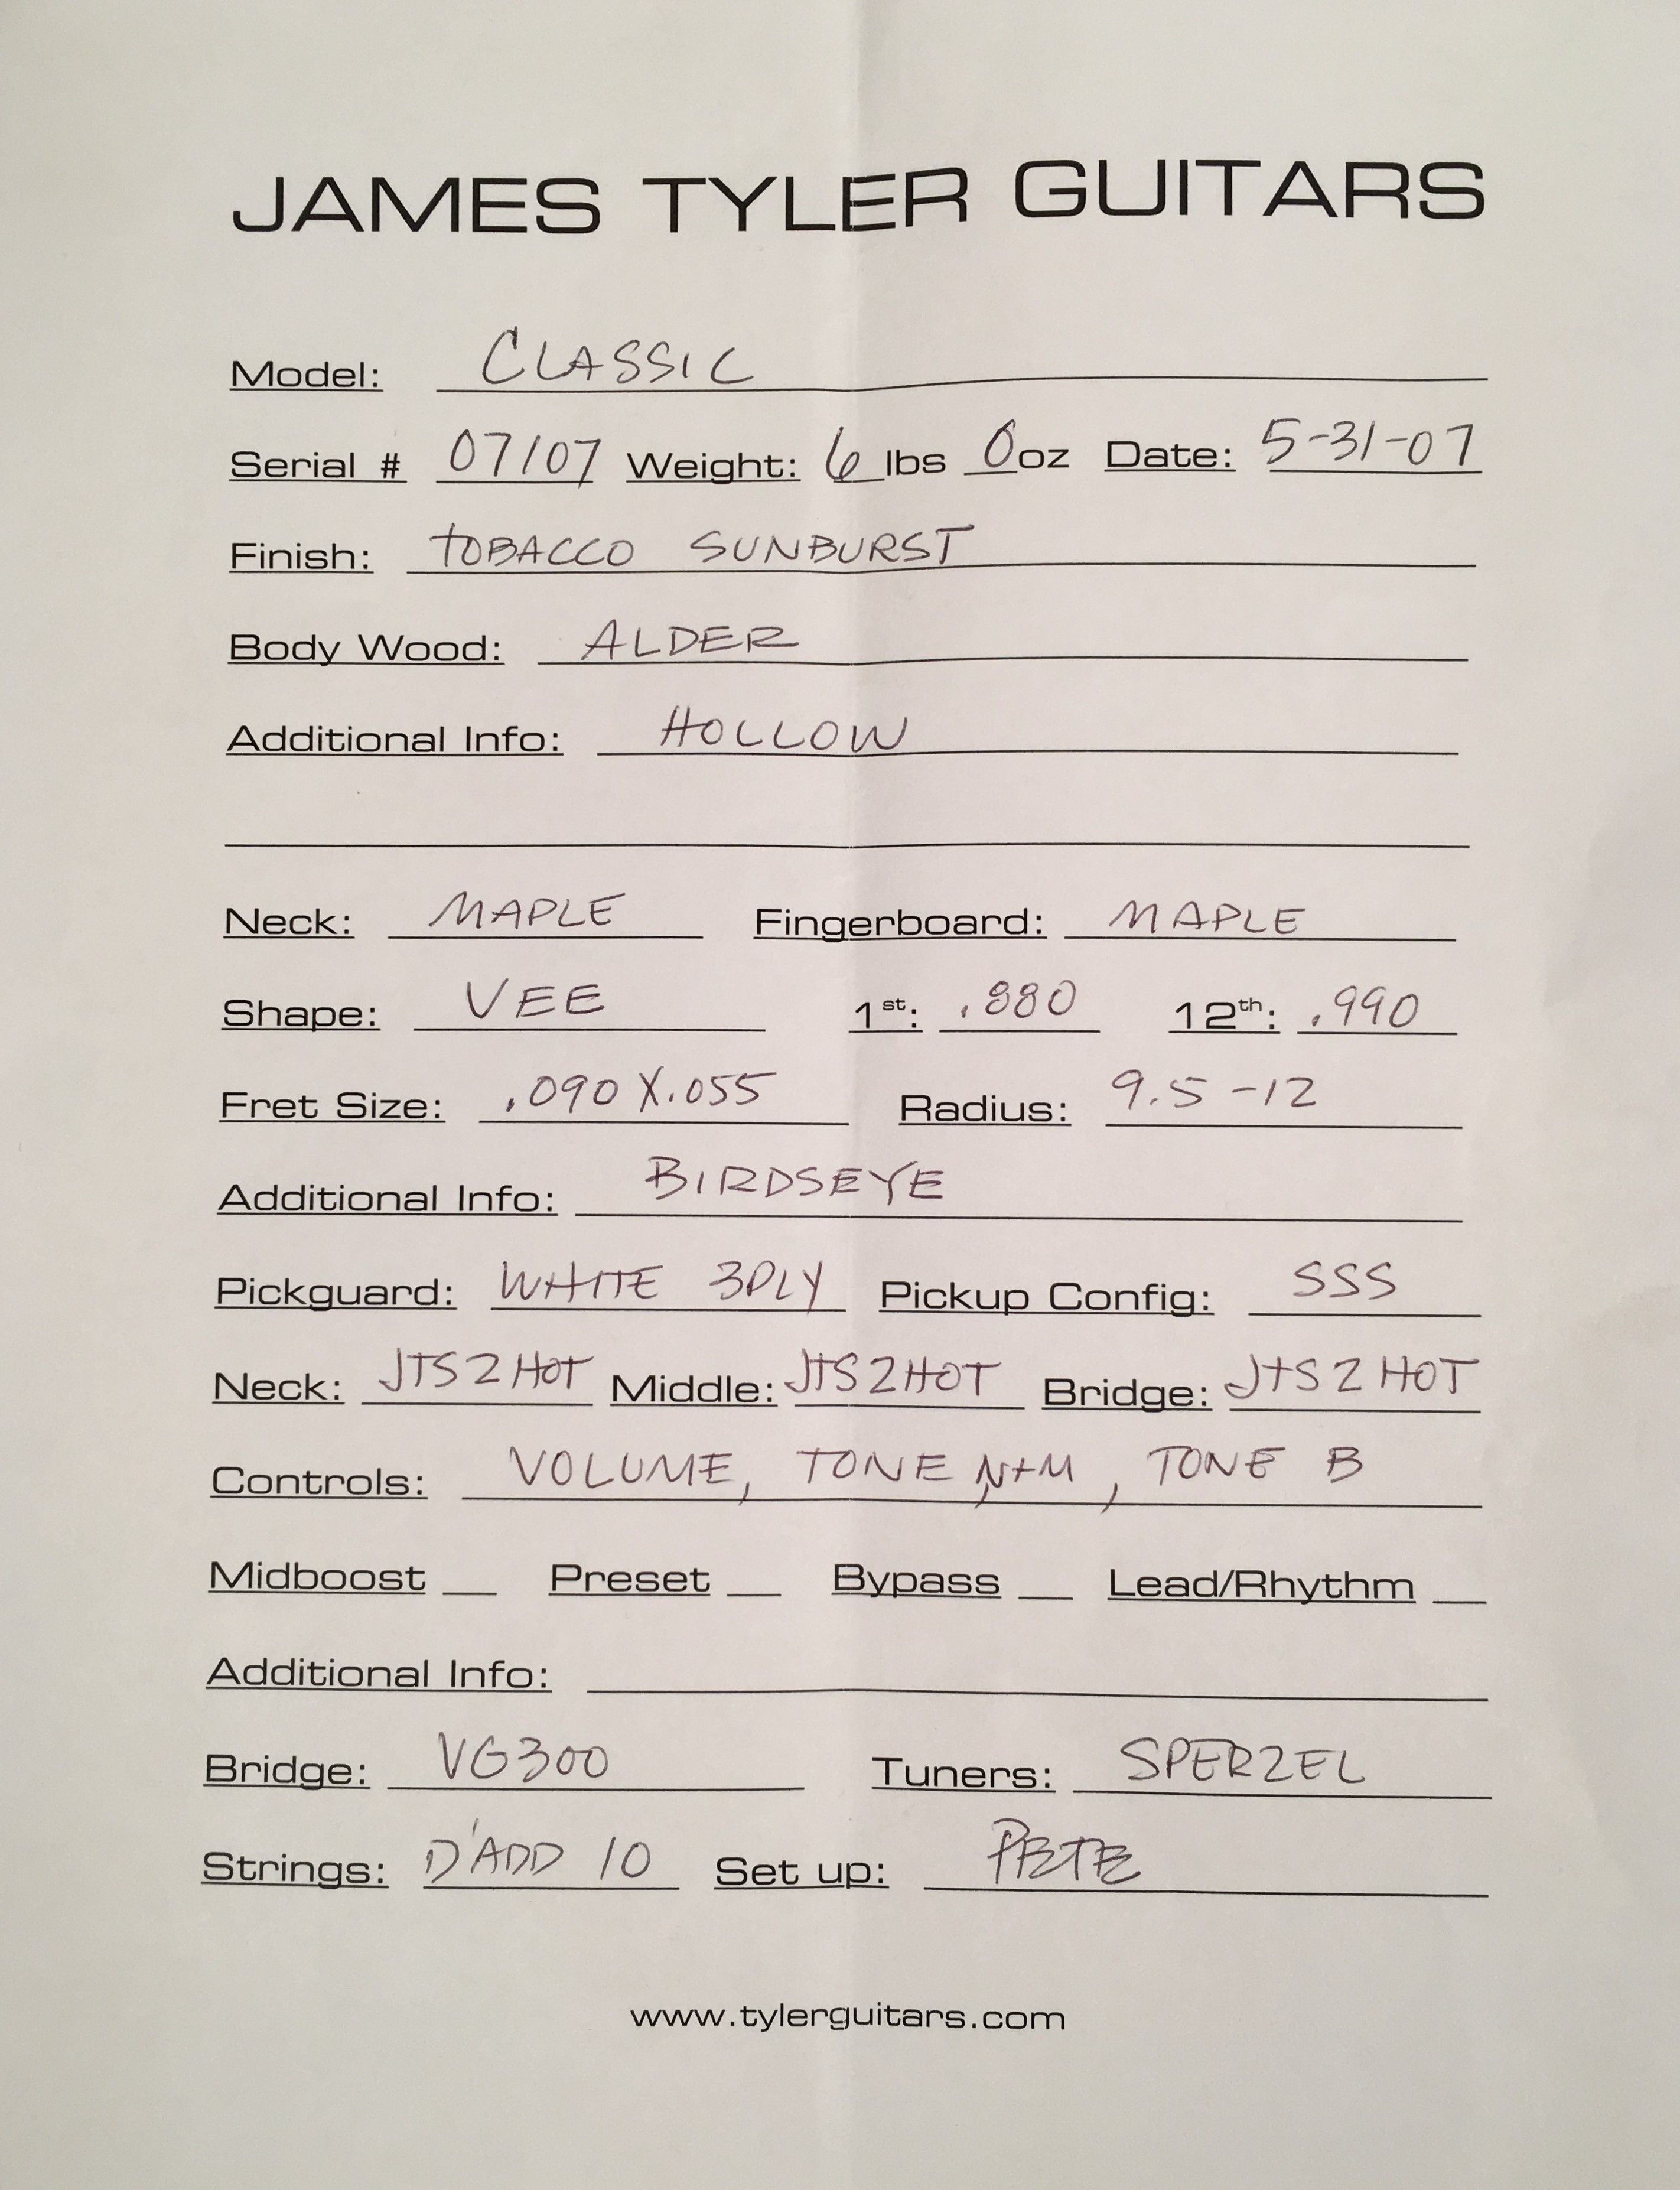 JAMES TYLER GUITARS
Model: CLASSIC
Serial # 07107 Weight: 6 lbs 0 oz Date: 5-31-07
Finish: TOBACCO SUNBURST
Body Wood: ALDER
Additional Info: HOLLOW
Neck: MAPLE Fingerboard: MAPLE
Shape: VEE 1st: .880 12th: .990
Fret Size: .090 X .055 Radius: 9.5-12
Additional Info: BIRDSEYE
Pickguard: WHITE 3PLY Pickup Config: SSS
Neck: JTS2HOT Middle: JTS2HOT Bridge: JTS2HOT
Controls: VOLUME, TONE N+M, TONE B
Midboost __ Preset __ Bypass __ Lead/Rhythm __
Additional Info:
Bridge: VG300 Tuners: SPERZEL
Strings: D'ADD 10 Set up: PETE
www.tylerguitars.com